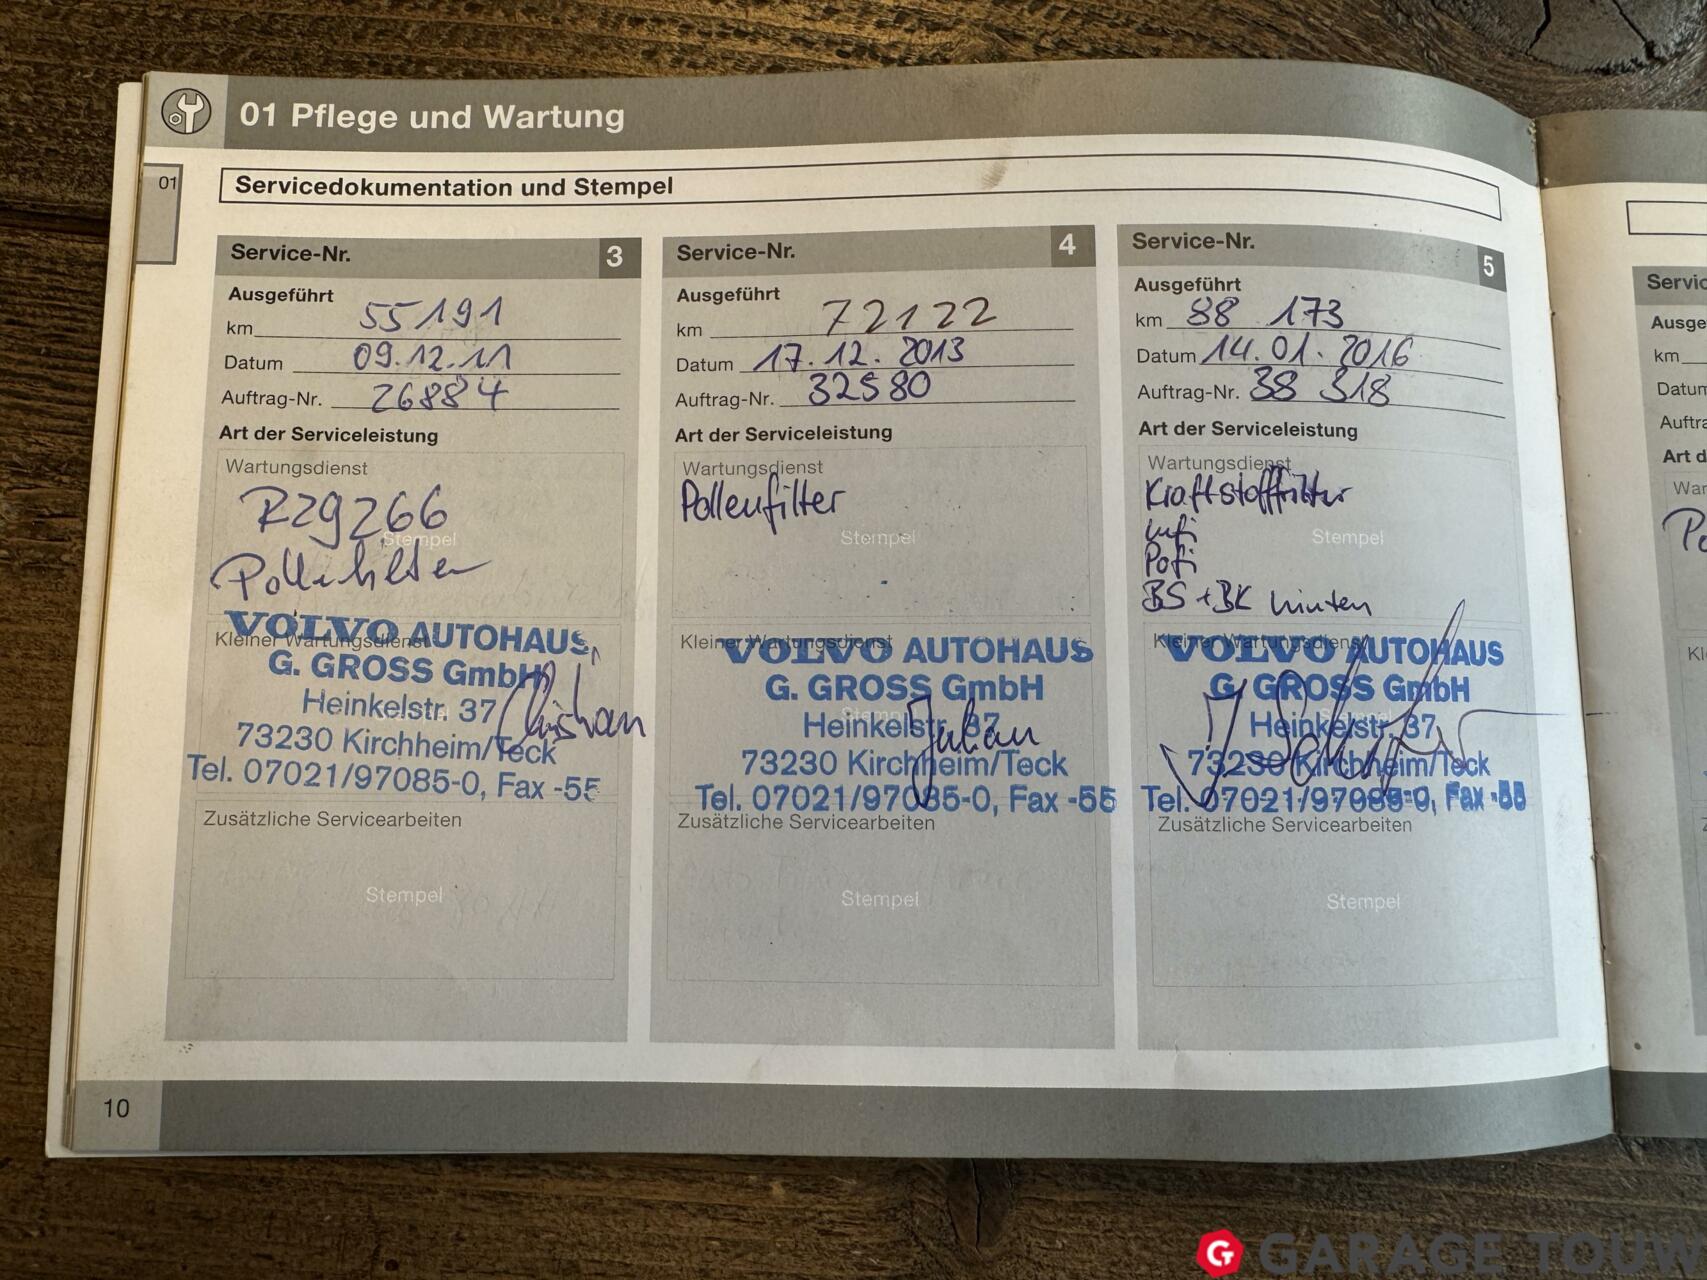 01 Pflege und Wartung
01
Servicedokumentation und Stempel
Service-Nr. 3
Ausgeführt
km 55191
Datum 09.12.11
Auftrag-Nr. 26884
Art der Serviceleistung
Wartungsdienst
Stempel
Kleiner Wartungsdienst
VOLVO AUTOHAUS
G. GROSS GmbH
Heinkelstr. 37
73230 Kirchheim/Teck
Tel. 07021/97085-0, Fax -55
Christian
Zusätzliche Servicearbeiten
Stempel
Service-Nr. 4
Ausgeführt
km 72122
Datum 17.12.2013
Auftrag-Nr. 32580
Art der Serviceleistung
Wartungsdienst
Pollenfilter
Stempel
Kleiner Wartungsdienst
VOLVO AUTOHAUS
G. GROSS GmbH
Heinkelstr. 37
73230 Kirchheim/Teck
Tel. 07021/97085-0, Fax -55
Julian
Zusätzliche Servicearbeiten
Stempel
Service-Nr. 5
Ausgeführt
km 88 173
Datum 14.01.2016
Auftrag-Nr. 38 318
Art der Serviceleistung
Wartungsdienst
Kraftstofffilter
Lufi
Pofi
BS + BK hinten
Stempel
Kleiner Wartungsdienst
VOLVO AUTOHAUS
G. GROSS GmbH
Heinkelstr. 37
73230 Kirchheim/Teck
Tel. 07021/97085-0, Fax -55
Zusätzliche Servicearbeiten
Stempel
10
Servic
Ausge
km
Datum
Auftra
Art d
War
Po
Kl
Z
GARAGE TOUW